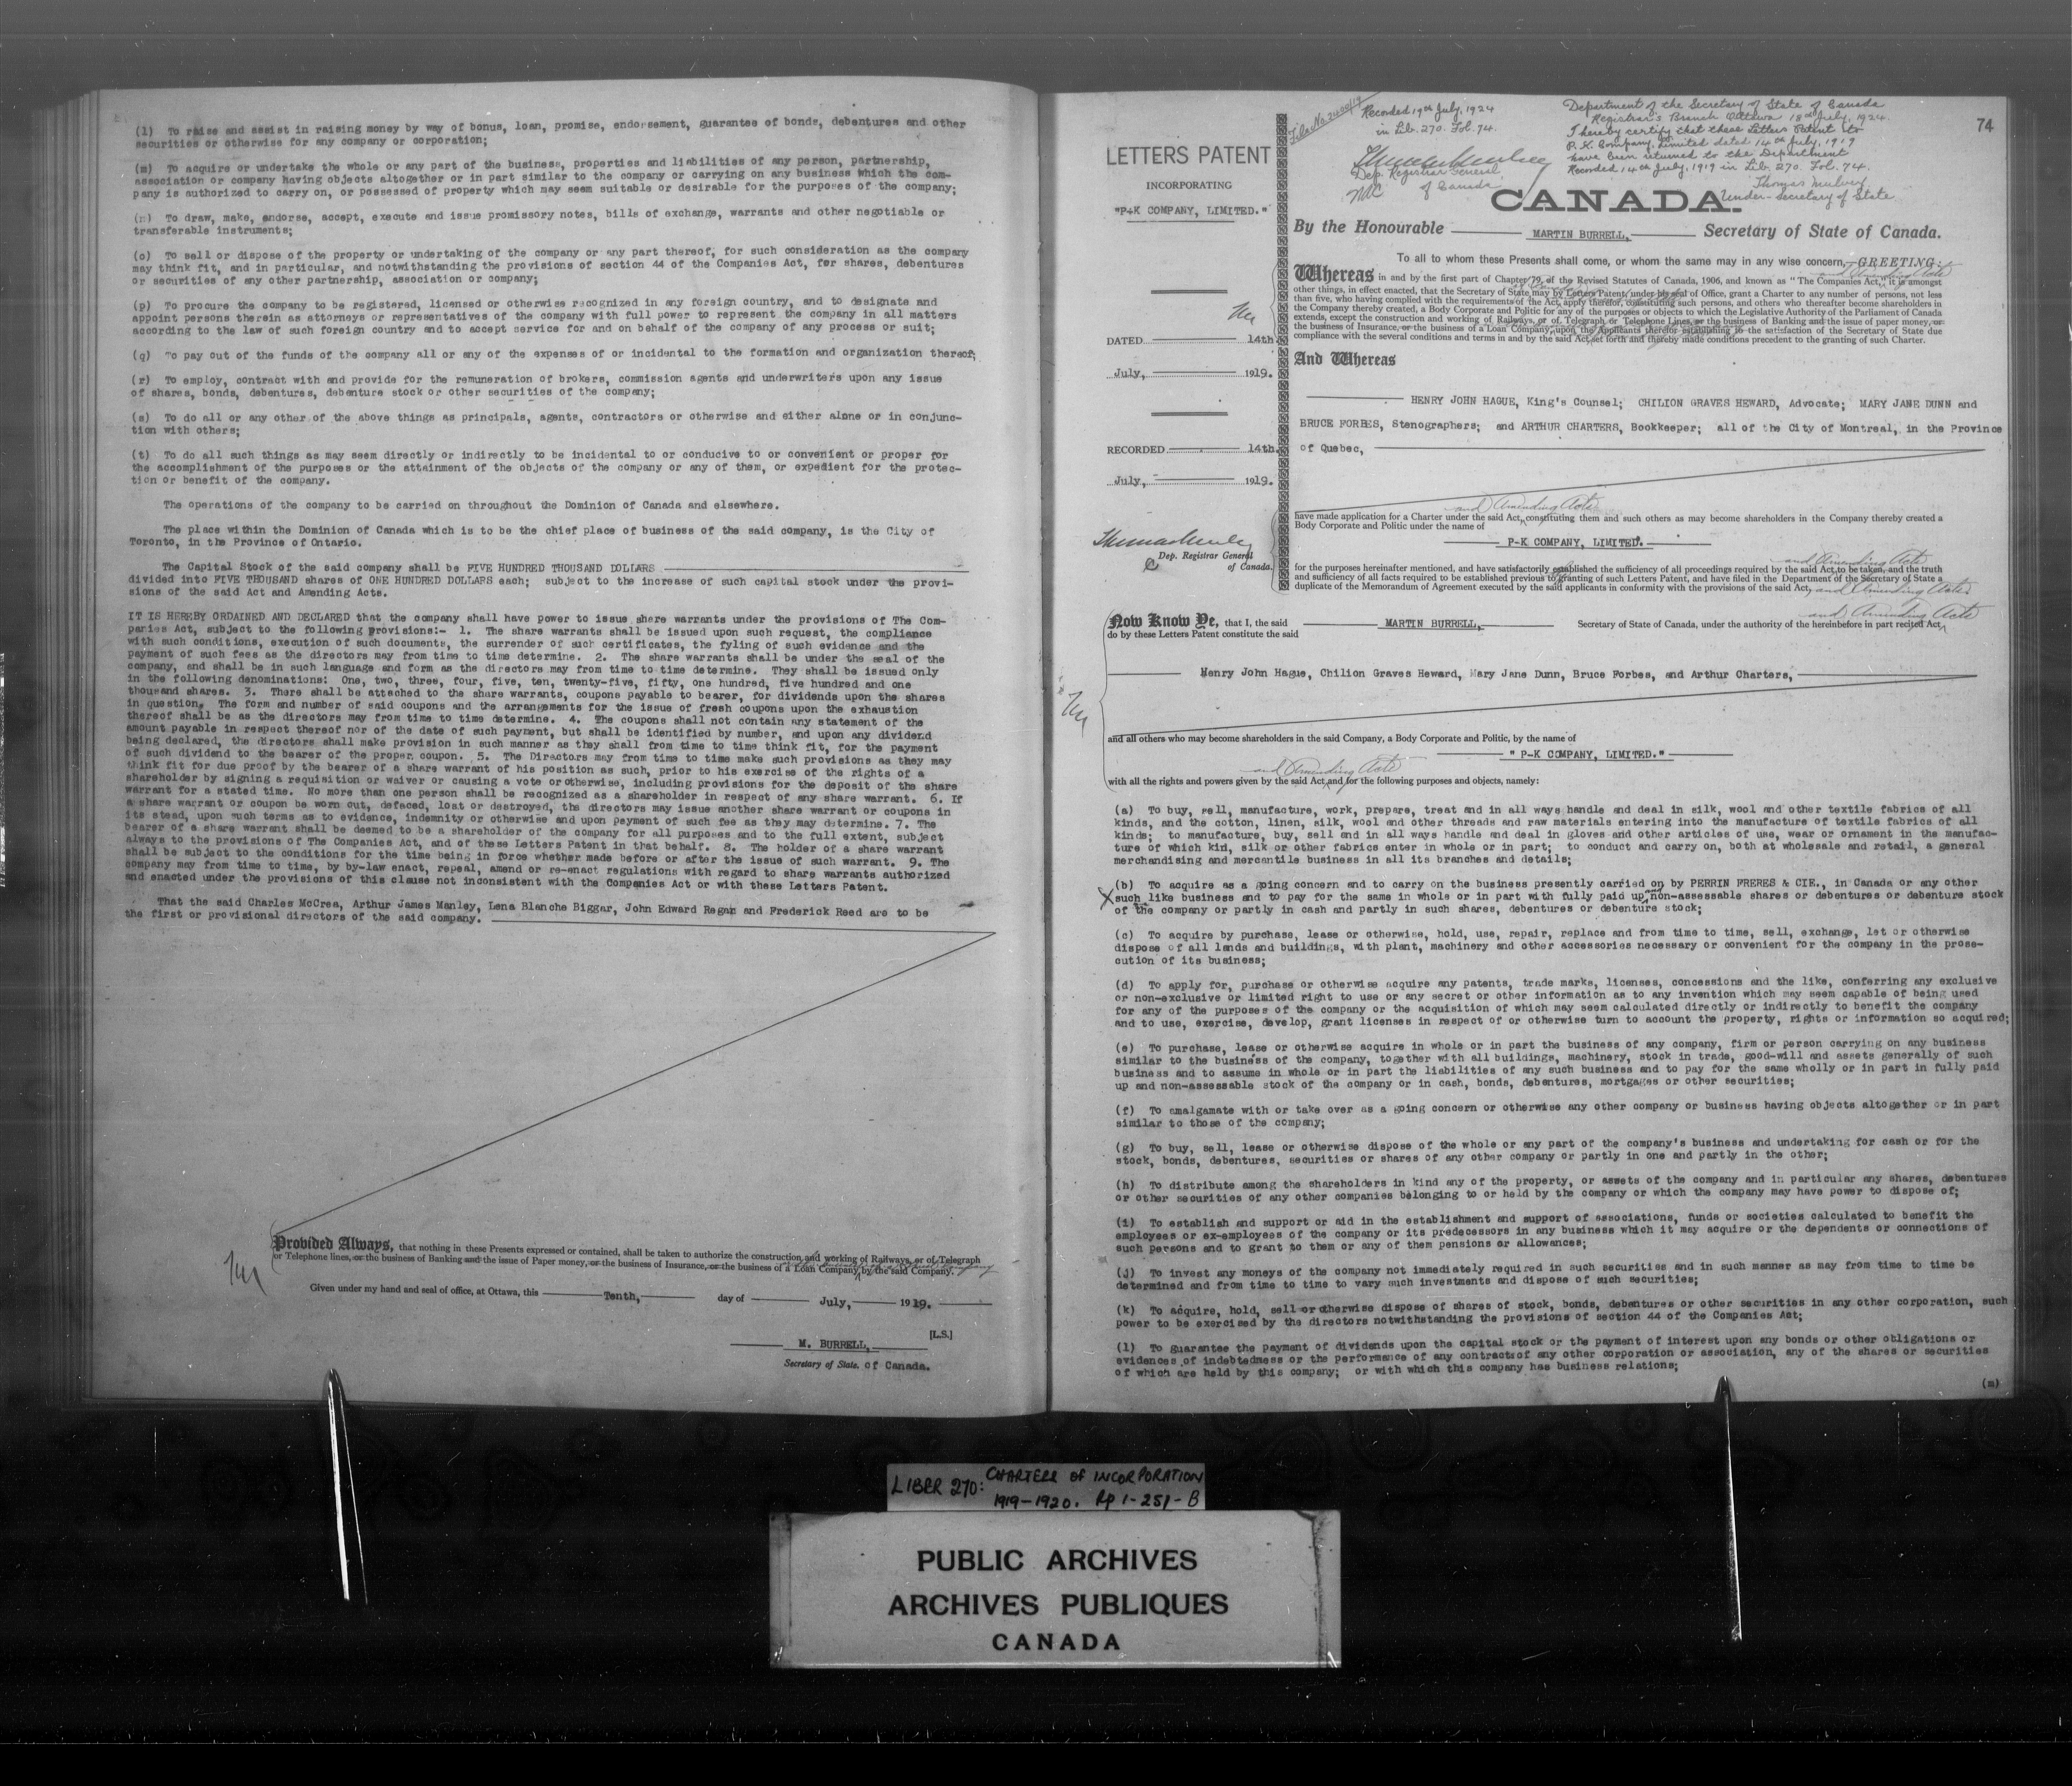 (l) To raise and assist in raising money by way of bonus, loan, promise, endorsement, guarantee of bonds, debentures and other
securities or otherwise for any company or corporation;
(m) To acquire or undertake the whole or any part of the business, properties and liabilities of any person, partnership,
association or company having objects altogether or in part similar to the company or carrying on any business which the com-
pany is authorized to carry on, or possessed of property which may seem suitable or desirable for the purposes of the company;
(n) To draw, make, endorse, accept, execute and issue promissory notes, bills of exchange, warrants and other negotiable or
transferable instruments;
(o) To sell or dispose of the property or undertaking of the company or any part thereof, for such consideration as the company
may think fit, and in particular, and notwithstanding the provisions of section 44 of the Companies Act, for shares, debentures
or securities of any other partnership, association or company;
(p) To procure the company to be registered, licensed or otherwise recognized in any foreign country, and to designate and
appoint persons therein as attorneys or representatives of the company with full power to represent the company in all matters
according to the law of such foreign country and to accept service for and on behalf of the company of any process or suit;
(q) To pay out of the funds of the company all or any of the expenses of or incidental to the formation and organization thereof;
(r) To employ, contract with and provide for the remuneration of brokers, commission agents and underwriters upon any issue
of shares, bonds, debentures, debenture stock or other securities of the company;
(s) To do all or any other of the above things as principals, agents, contractors or otherwise and either alone or in conjunc-
tion with others;
(t) To do all such things as may seem directly or indirectly to be incidental to or conducive to or convenient or proper for
the accomplishment of the purposes or the attainment of the objects of the company or any of them, or expedient for the protec-
tion or benefit of the company.
The operations of the company to be carried on throughout the Dominion of Canada and elsewhere.
The place within the Dominion of Canada which is to be the chief place of business of the said company, is the City of
Toronto, in the Province of Ontario.
The Capital Stock of the said company shall be FIVE HUNDRED THOUSAND DOLLARS
divided into FIVE THOUSAND shares of ONE HUNDRED DOLLARS each; subject to the increase of such capital stock under the provi-
sions of the said Act and Amending Acts.
IT IS HEREBY ORDAINED AND DECLARED that the company shall have power to issue share warrants under the provisions of The Com-
panies Act, subject to the following provisions:- 1. The share warrants shall be issued upon such request, the compliance
with such conditions, execution of such documents, the surrender of such certificates, the fyling of such evidence and the
payment of such fees as the directors may from time to time determine. 2. The share warrants shall be under the seal of the
company, and shall be in such language and form as the directors may from time to time determine. They shall be issued only
in the following denominations: One, two, three, four, five, ten, twenty-five, fifty, one hundred, five hundred and one
thousand shares. 3. There shall be attached to the share warrants, coupons payable to bearer, for dividends upon the shares
in question. The form and number of said coupons and the arrangements for the issue of fresh coupons upon the exhaustion
thereof shall be as the directors may from time to time determine. 4. The coupons shall not contain any statement of the
amount payable in respect thereof nor of the date of such payment, but shall be identified by number, and upon any dividend
being declared, the directors shall make provision in such manner as they shall from time to time think fit, for the payment
of such dividend to the bearer of the proper coupon. 5. The Directors may from time to time make such provisions as they may
think fit for due proof by the bearer of a share warrant of his position as such, prior to his exercise of the rights of a
shareholder by signing a requisition or waiver or causing a vote or otherwise, including provisions for the deposit of the share
warrant for a stated time. No more than one person shall be recognized as a shareholder in respect of any share warrant. 6. If
a share warrant or coupon be worn out, defaced, lost or destroyed, the directors may issue another share warrant or coupons in
its stead, upon such terms as to evidence, indemnity or otherwise and upon payment of such fee as they may determine. 7. The
bearer of a share warrant shall be deemed to be a shareholder of the company for all purposes and to the full extent, subject
always to the provisions of The Companies Act, and of these Letters Patent in that behalf. 8. The holder of a share warrant
shall be subject to the conditions for the time being in force whether made before or after the issue of such warrant. 9. The
company may from time to time, by by-law enact, repeal, amend or re-enact regulations with regard to share warrants authorized
and enacted under the provisions of this clause not inconsistent with the Companies Act or with these Letters Patent.
That the said Charles McCrea, Arthur James Manley, Lena Blanche Biggar, John Edward Regan and Frederick Reed are to be
the first or provisional directors of the said company.
Provided Always, that nothing in these Presents expressed or contained, shall be taken to authorize the construction and working of Railways, or of Telegraph
or Telephone lines, or the business of Banking and the issue of Paper money, or the business of Insurance, or the business of a Loan Company by the said Company.
Given under my hand and seal of office, at Ottawa, this Tenth, day of July, 1919.
[L.S.]
M. BURRELL,
Secretary of State. of Canada.
74
LETTERS PATENT
INCORPORATING
"P+K COMPANY, LIMITED."
DATED 14th
July, 1919.
RECORDED 14th
July, 1919.
Dep. Registrar General
of Canada.
Recorded 19th July, 1924
in Lib. 270. Fol. 74.
Dep. Registrar General
of Canada
Department of the Secretary of State of Canada
Registrar's Branch Ottawa 18th July, 1924.
I hereby certify that these Letters Patent to
P.K. Company, Limited dated 14th July, 1919
have been returned to the Department
Recorded 14th July, 1919 in Lib. 270. Fol. 74.
Thomas Mulvey
Under-Secretary of State
CANADA.
By the Honourable MARTIN BURRELL, Secretary of State of Canada.
To all to whom these Presents shall come, or whom the same may in any wise concern, GREETING:
and Amending Acts
Whereas in and by the first part of Chapter 79, of the Revised Statutes of Canada, 1906, and known as "The Companies Act," it is amongst
other things, in effect enacted, that the Secretary of State may by Letters Patent under his seal of Office, grant a Charter to any number of persons, not less
than five, who having complied with the requirements of the Act, apply therefor, constituting such persons, and others who thereafter become shareholders in
the Company thereby created, a Body Corporate and Politic for any of the purposes or objects to which the Legislative Authority of the Parliament of Canada
extends, except the construction and working of Railways, or of Telegraph or Telephone Lines, or the business of Banking and the issue of paper money, or
the business of Insurance, or the business of a Loan Company, upon the Applicants therefor establishing to the satisfaction of the Secretary of State due
compliance with the several conditions and terms in and by the said Act set forth and thereby made conditions precedent to the granting of such Charter.
And Whereas
HENRY JOHN HAGUE, King's Counsel; CHILION GRAVES HEWARD, Advocate; MARY JANE DUNN and
BRUCE FORBES, Stenographers; and ARTHUR CHARTERS, Bookkeeper; all of the City of Montreal, in the Province
of Quebec,
and Amending Acts
have made application for a Charter under the said Act, constituting them and such others as may become shareholders in the Company thereby created a
Body Corporate and Politic under the name of
P-K COMPANY, LIMITED.
and Amending Acts
for the purposes hereinafter mentioned, and have satisfactorily established the sufficiency of all proceedings required by the said Act to be taken, and the truth
and sufficiency of all facts required to be established previous to granting of such Letters Patent, and have filed in the Department of the Secretary of State a
duplicate of the Memorandum of Agreement executed by the said applicants in conformity with the provisions of the said Act, and Amending Acts
and Amending Acts
Now Know Ye, that I, the said MARTIN BURRELL, Secretary of State of Canada, under the authority of the hereinbefore in part recited Act
do by these Letters Patent constitute the said
Henry John Hague, Chilion Graves Heward, Mary Jane Dunn, Bruce Forbes, and Arthur Charters,
and all others who may become shareholders in the said Company, a Body Corporate and Politic, by the name of
" P-K COMPANY, LIMITED."
and Amending Acts
with all the rights and powers given by the said Act, and for the following purposes and objects, namely:
(a) To buy, sell, manufacture, work, prepare, treat and in all ways handle and deal in silk, wool and other textile fabrics of all
kinds, and the cotton, linen, silk, wool and other threads and raw materials entering into the manufacture of textile fabrics of all
kinds; to manufacture, buy, sell and in all ways handle and deal in gloves and other articles of use, wear or ornament in the manufac-
ture of which kind, silk or other fabrics enter in whole or in part; to conduct and carry on, both at wholesale and retail, a general
merchandising and mercantile business in all its branches and details;
(b) To acquire as a going concern and to carry on the business presently carried on by PERRIN FRERES & CIE., in Canada or any other
such like business and to pay for the same in whole or in part with fully paid up and non-assessable shares or debentures or debenture stock
of the company or partly in cash and partly in such shares, debentures or debenture stock;
(c) To acquire by purchase, lease or otherwise, hold, use, repair, replace and from time to time, sell, exchange, let or otherwise
dispose of all lands and buildings, with plant, machinery and other accessories necessary or convenient for the company in the prose-
cution of its business;
(d) To apply for, purchase or otherwise acquire any patents, trade marks, licenses, concessions and the like, conferring any exclusive
or non-exclusive or limited right to use or any secret or other information as to any invention which may seem capable of being used
for any of the purposes of the company or the acquisition of which may seem calculated directly or indirectly to benefit the company
and to use, exercise, develop, grant licenses in respect of or otherwise turn to account the property, rights or information so acquired;
(e) To purchase, lease or otherwise acquire in whole or in part the business of any company, firm or person carrying on any business
similar to the business of the company, together with all buildings, machinery, stock in trade, good-will and assets generally of such
business and to assume in whole or in part the liabilities of any such business and to pay for the same wholly or in part in fully paid
up and non-assessable stock of the company or in cash, bonds, debentures, mortgages or other securities;
(f) To amalgamate with or take over as a going concern or otherwise any other company or business having objects altogether or in part
similar to those of the company;
(g) To buy, sell, lease or otherwise dispose of the whole or any part of the company's business and undertaking for cash or for the
stock, bonds, debentures, securities or shares of any other company or partly in one and partly in the other;
(h) To distribute among the shareholders in kind any of the property, or assets of the company and in particular any shares, debentures
or other securities of any other companies belonging to or held by the company or which the company may have power to dispose of;
(i) To establish and support or aid in the establishment and support of associations, funds or societies calculated to benefit the
employees or ex-employees of the company or its predecessors in any business which it may acquire or the dependents or connections of
such persons and to grant to them or any of them pensions or allowances;
(j) To invest any moneys of the company not immediately required in such securities and in such manner as may from time to time be
determined and from time to time to vary such investments and dispose of such securities;
(k) To acquire, hold, sell or otherwise dispose of shares of stock, bonds, debentures or other securities in any other corporation, such
power to be exercised by the directors notwithstanding the provisions of section 44 of the Companies Act;
(l) To guarantee the payment of dividends upon the capital stock or the payment of interest upon any bonds or other obligations or
evidences of indebtedness or the performance of any contracts of any other corporation or association, any of the shares or securities
of which are held by this company; or with which this company has business relations;
(m)
LIBER 270: CHARTERS OF INCORPORATION
1919-1920. Pp 1-251-B
PUBLIC ARCHIVES
ARCHIVES PUBLIQUES
CANADA